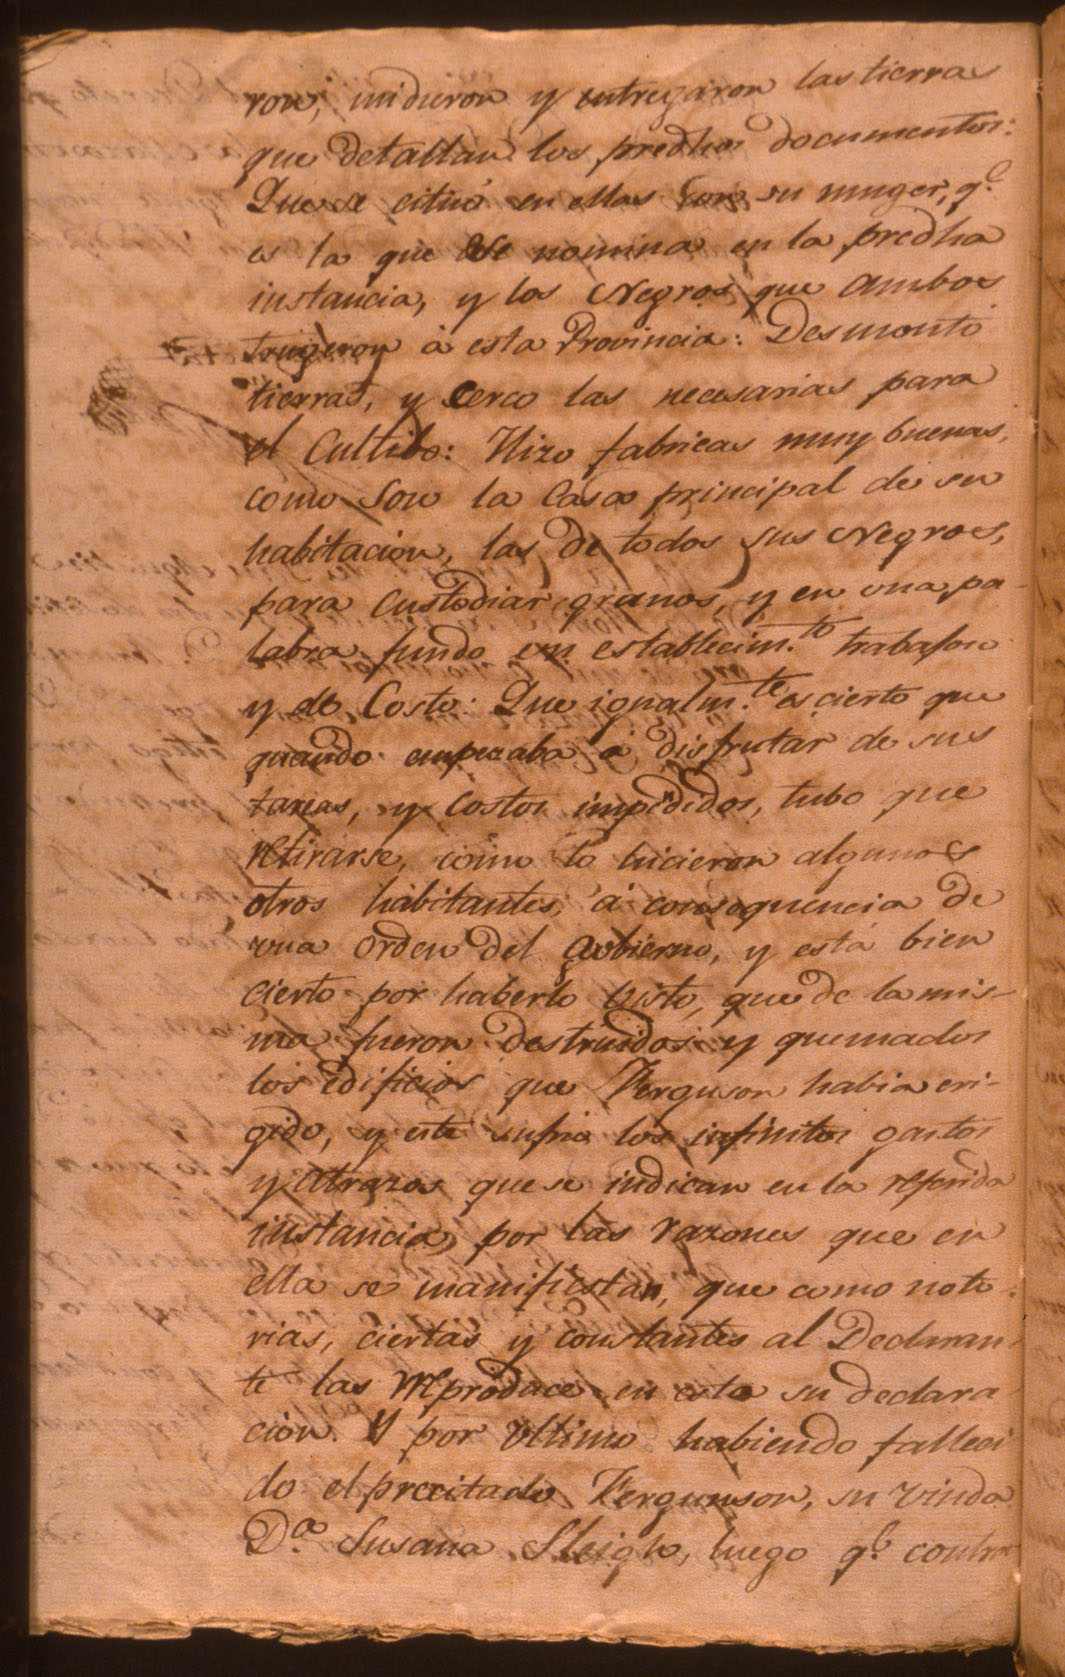 ron, midieron y entregaron las tierras
que detallan los predhos documentos:
Que se citúo en ellas con su muger, q.e
es la que se nomina en la predha
instancia, y los Negros que ambos
trugeron á esta Provincia: Desmontó
tierras, y cerco las necesarias para
el Cultibo: Hizo fabricas muy buenas,
como son la Casa principal de su
habitacion, las de todos sus Negros,
para Custodiar granos, y en una pa-
labra fundo un establecim.to trabajoso
y de Costo: Que igualm.te es cierto que
quando empezaba á disfrutar de sus
tareas, y Costos impendidos, tubo que
retirarse, como lo hicieron algunos
otros habitantes, á consequencia de
una orden del Gobierno, y está bien
cierto por haberlo visto, que de la mis-
ma fueron destruidos y quemados
los edificios que Ferguson habia eri-
gido, y este sufrio los infinitos gastos
y atrazos que se indican en la referida
instancia, por las razones que en
ella se manifiestan, que como noto-
rias, ciertas y constantes al Declaran-
te las reproduce en esta su declara-
cion. Y por ultimo habiendo falleci-
do el precitado Fergunson, su viuda
D.a Susana Sleigh, luego q.e contra-